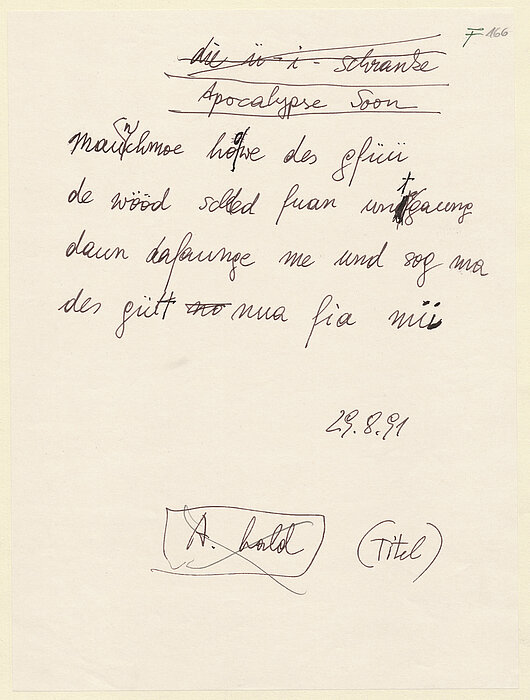 F 166
die ü-i-schranke
Apocalypse Soon
manchmoe howe des gfüü
de wööd soded fuan untgaung
daun dafaunge me und sog ma
des gütt no nua fia mii
29.8.91
A. (Titel)